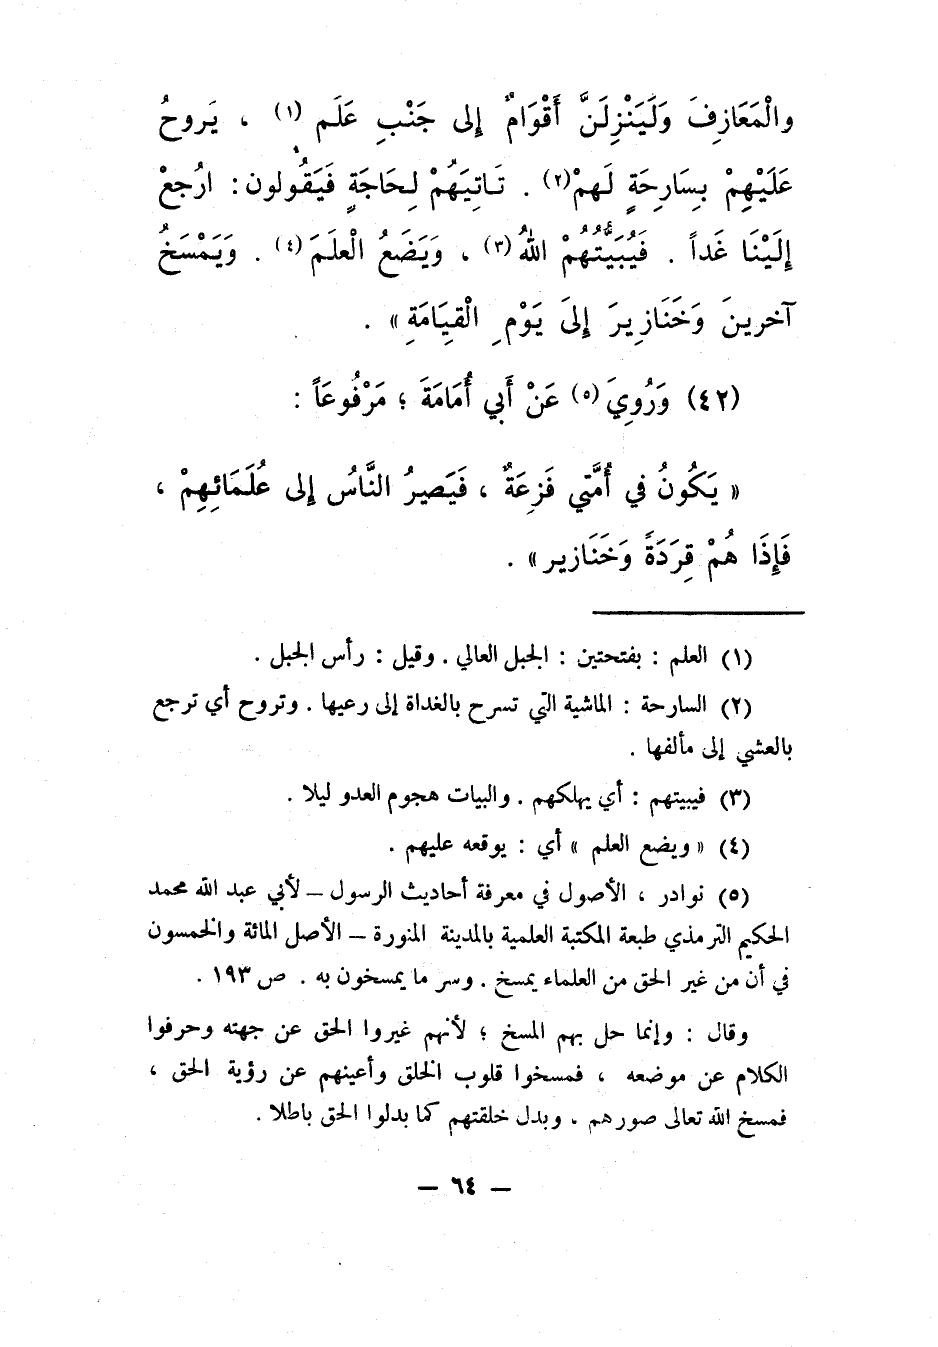 والْمَعَازِفَ وَلَيَنْزِلَنَّ أَقْوَامٌ إلى جَنْبِ عَلَم (١) ، يَروحُ
عَلَيْهِمْ بِسَارِحَةٍ لَهمْ(٢) . تَاتِيَهُمْ لِحَاجَةٍ فَيَقُولون : ارُجعْ
إلَيْنَا غَداً . فَيُبَيَّتُهُمْ اللهُ(٣) ، وَيَضَعُ الْعلَمَ(٤) . وَيَمْسَخُ
آخرينَ وَخَنَازِيرَ إلىَ يَوْمِ الْقِيَامَةِ » .
(٤٢) وَرُوِيَ(٥) عَنْ أَبي أُمَامَةَ ؛ مَرْفُوعَاً :
« يَكُونُ في أُمَّتي فَزعَةٌ ، فَيَصيرُ النَّاسُ إلى عُلَمَائِهِمْ ،
فَإِذَا هُمْ قِرَدَةً وَخَنَازير » .
(١) العلم : بفتحتين : الجبل العالي . وقيل : رأس الجبل .
(٢) السارحة : الماشية التي تسرح بالغداة إلى رعيها . وتروح أي ترجع
بالعشي إلى مألفها .
(٣) فيبيتهم : أي يهلكهم . والبيات هجوم العدو ليلا .
(٤) « ويضع العلم » أي : يوقعه عليهم .
(٥) نوادر ، الأصول في معرفة أحاديث الرسول – لأبي عبد الله محمد
الحكيم الترمذي طبعة المكتبة العلمية بالمدينة المنورة – الأصل المائة والخمسون
في أن من غير الحق من العلماء يمسخ . وسر ما يمسخون به . ص ١٩٣ .
وقال : وإنما حل بهم المسخ ؛ لأنهم غيروا الحق عن جهته وحرفوا
الكلام عن موضعه ، فمسخوا قلوب الخلق وأعينهم عن رؤية الحق ،
فمسخ الله تعالى صورهم . وبدل خلقتهم كما بدلوا الحق باطلا .
– ٦٤ –